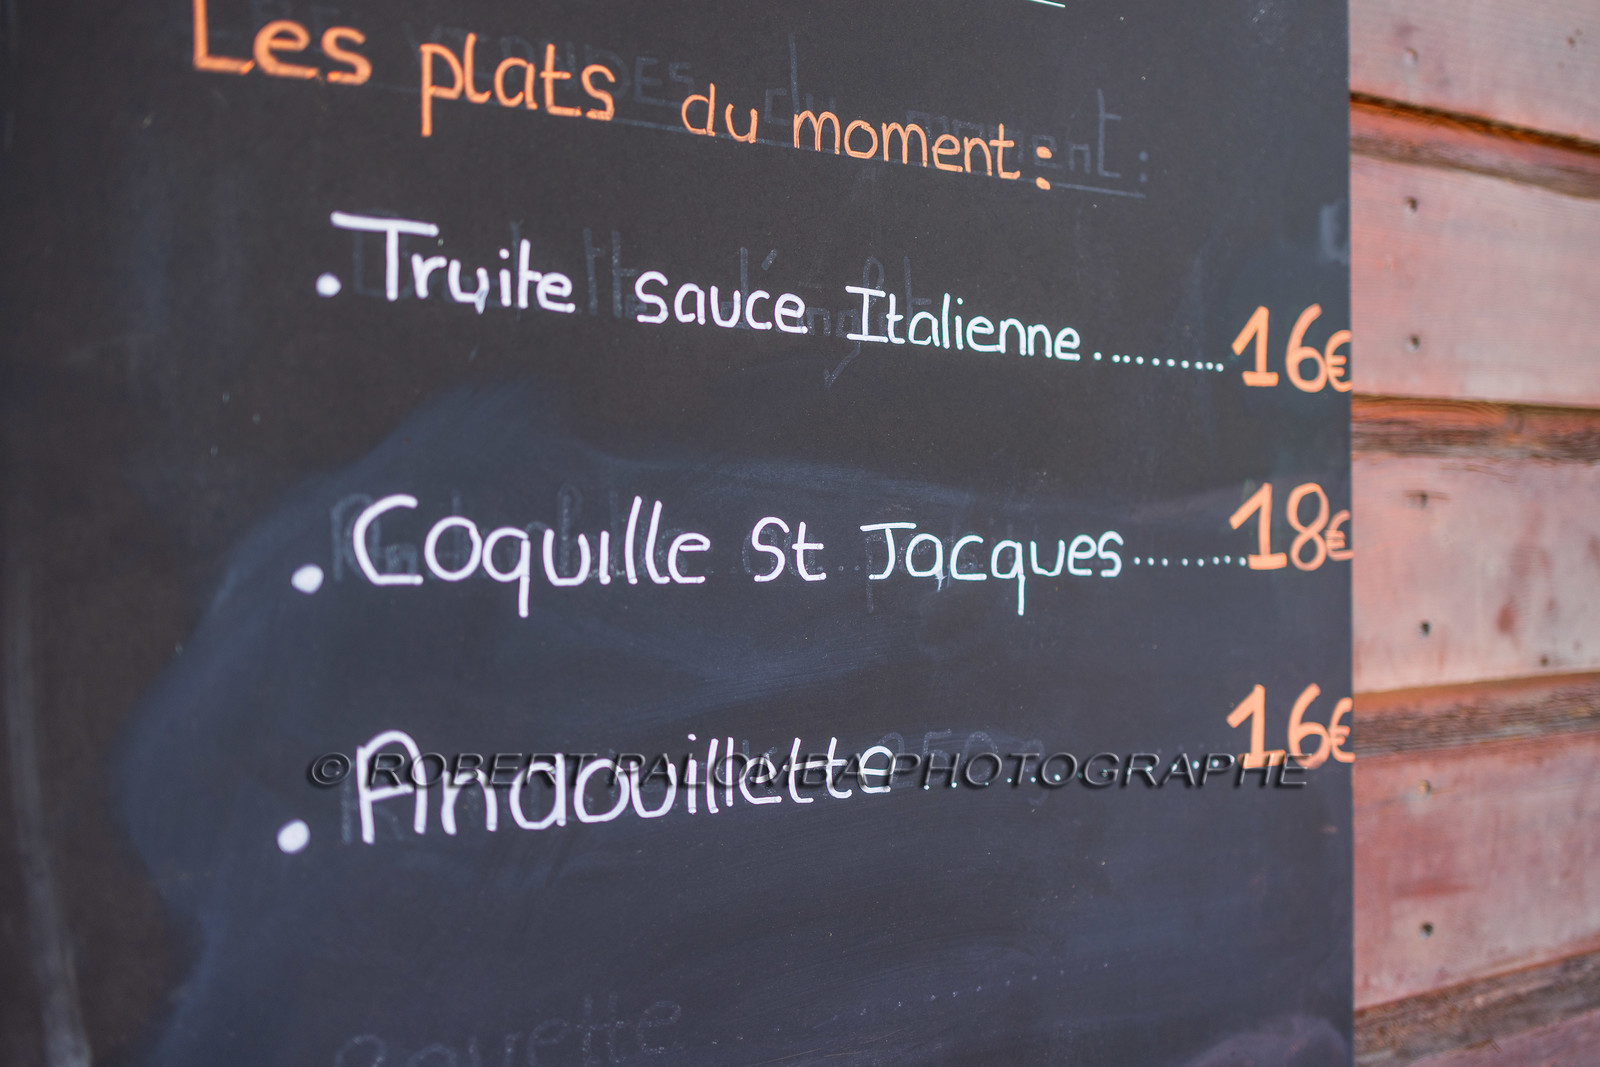 Les plats du moment :
. Truite sauce Italienne.......... 16€
. Coquille St Jacques........ 18€
. Andouillette .............. 16€
© ROBERT PALOMBA PHOTOGRAPHE